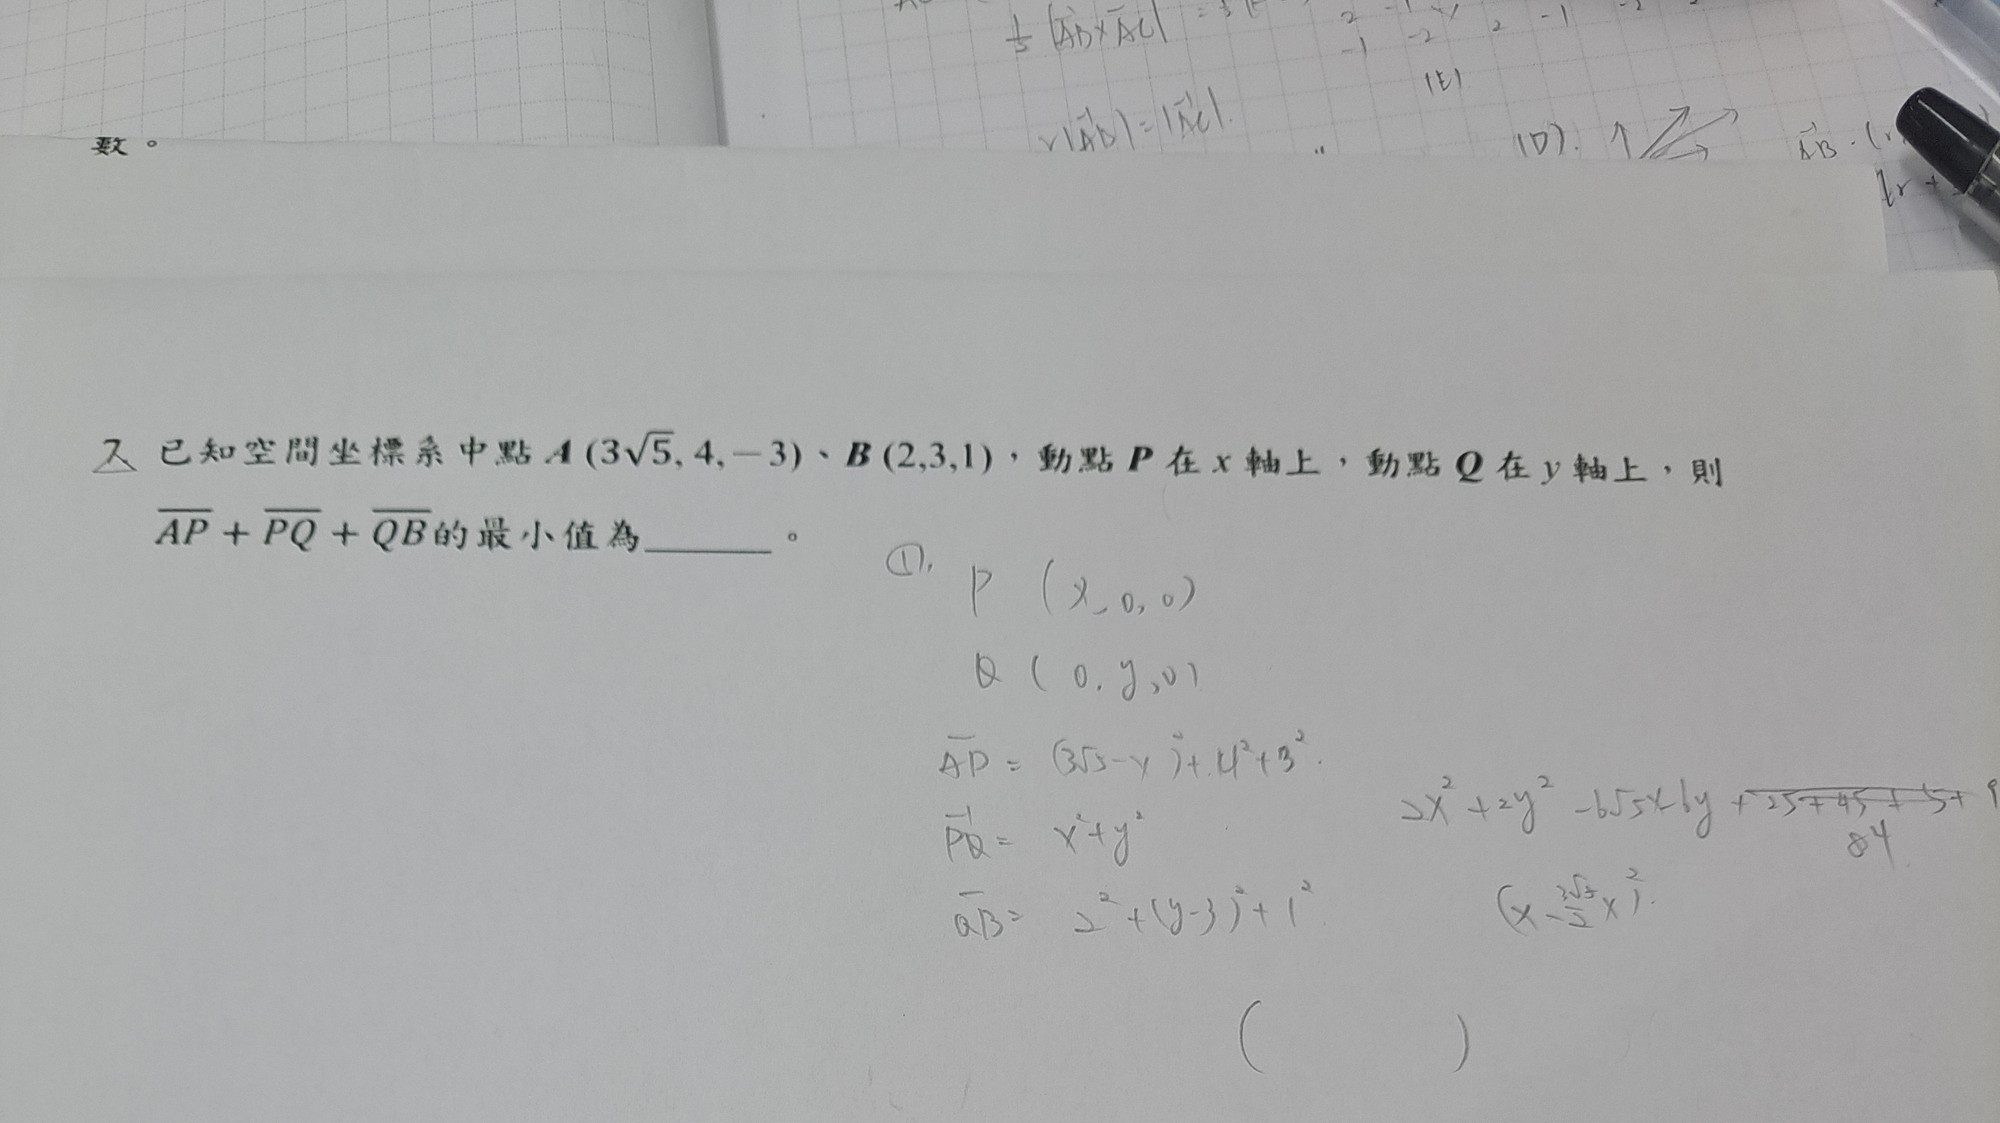 |AB×AC|
(E)
r|AB|=|AC|.
(D).
數。
已知空間坐標系中點 A (3√5, 4, －3)、B (2,3,1)，動點 P 在 x 軸上，動點 Q 在 y 軸上，則
AP + PQ + QB的最小值為______。
①.
P (x, 0, 0)
Q (0, y, 0)
AP = (3√5-x)²+4²+3².
PQ = x²+y²
QB = 2²+(y-3)²+1²
2x²+2y²-6√5x-6y+25+45+5+9
84
(x-3√5/2x)².
( )